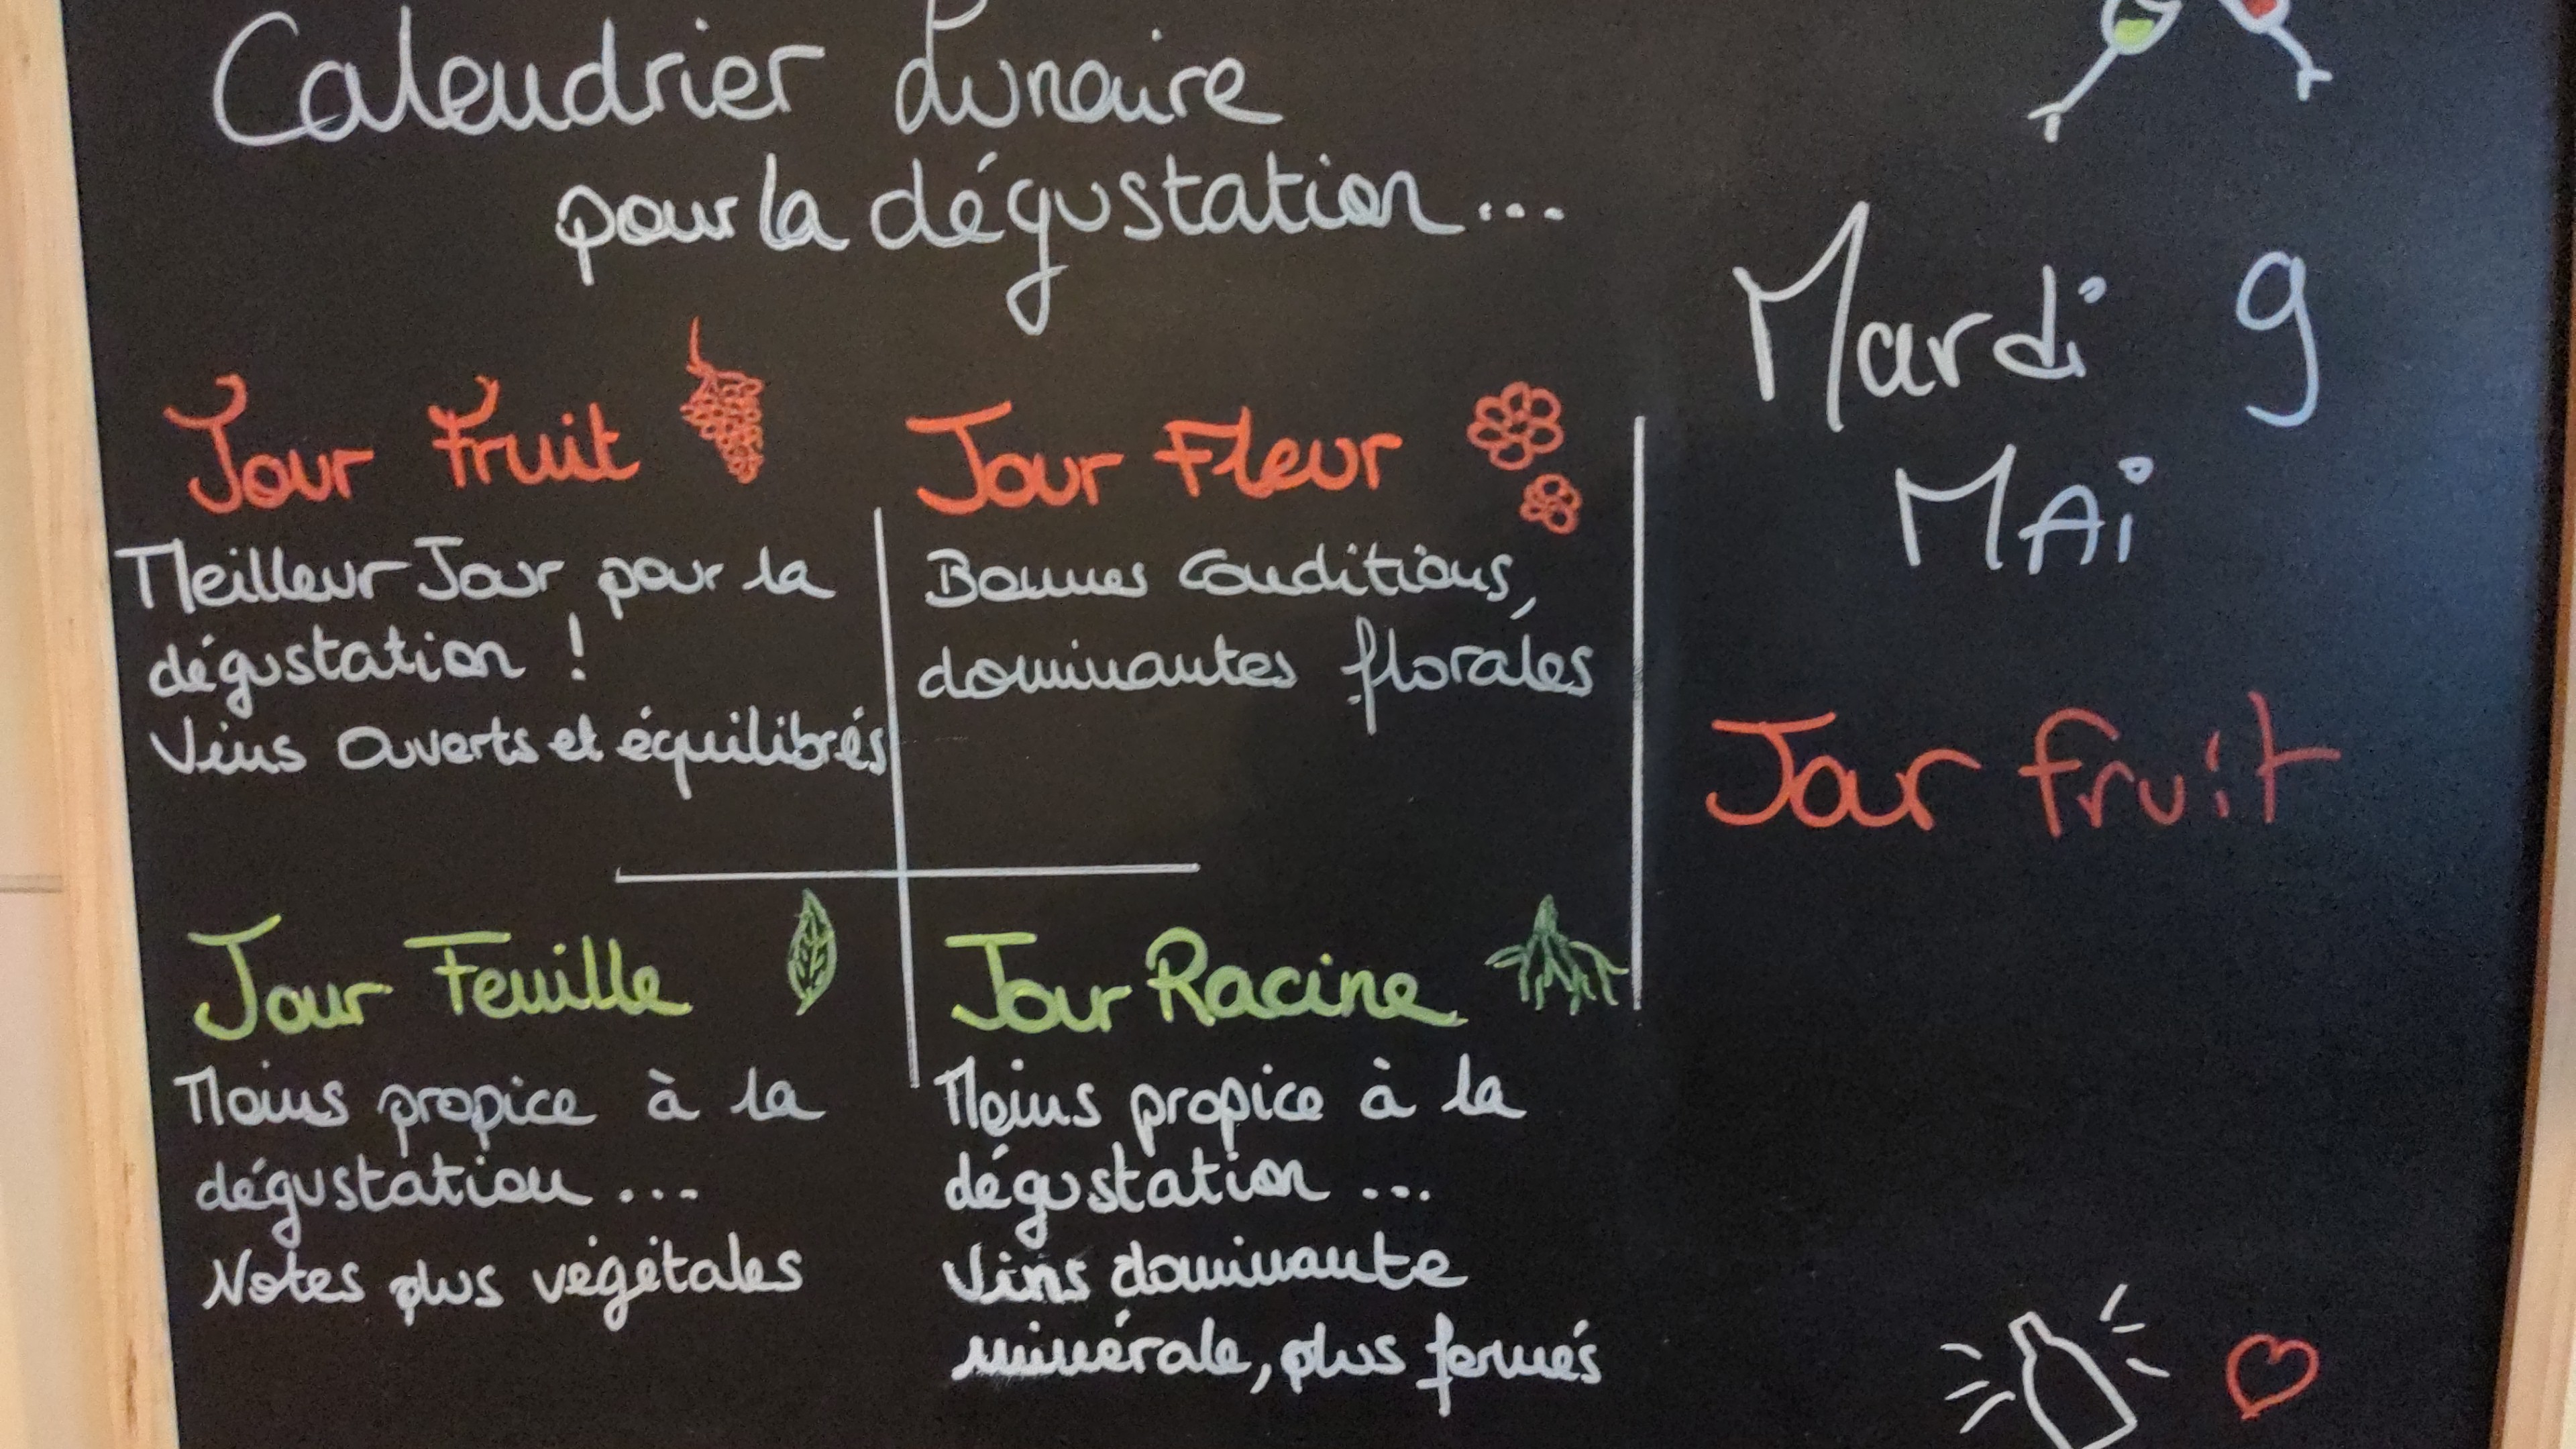 Calendrier Lunaire
pour la dégustation...
Jour Fruit
Meilleur Jour pour la
dégustation !
Vins ouverts et équilibrés
Jour Fleur
Bonnes Conditions,
dominantes florales
Jour Feuille
Moins propice à la
dégustation...
Notes plus végétales
Jour Racine
Moins propice à la
dégustation...
Vins dominante
minérale, plus fermés
Mardi 9
MAi
Jour fruit